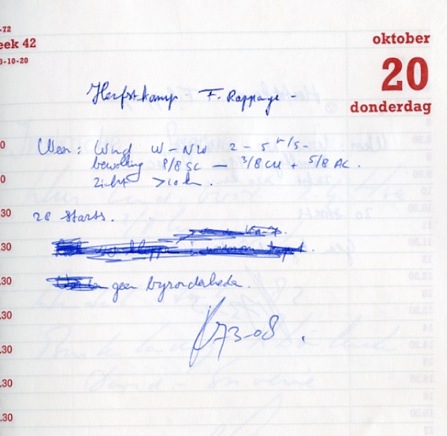 -72
eek 42
3-10-20
oktober
20
donderdag
Herfstkamp F. Rappange -
Weer: Wind W-NW 2-5
bewolking 8/8 SC - 3/8 CU + 5/8 AC.
zicht >10 km.
28 starts.
geen byzonderheden.
73-08.
0
0
.30
.30
.30
.30
.30
.30
.30